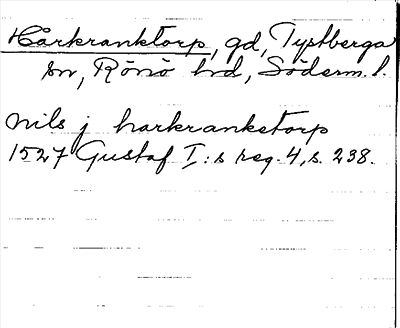 Hårkranktorp, gd, Tystberga
sn, Rönö hd, Söderm. l.
Nils j harkranketorp
1527 Gustaf I:s reg. 4, s. 238.